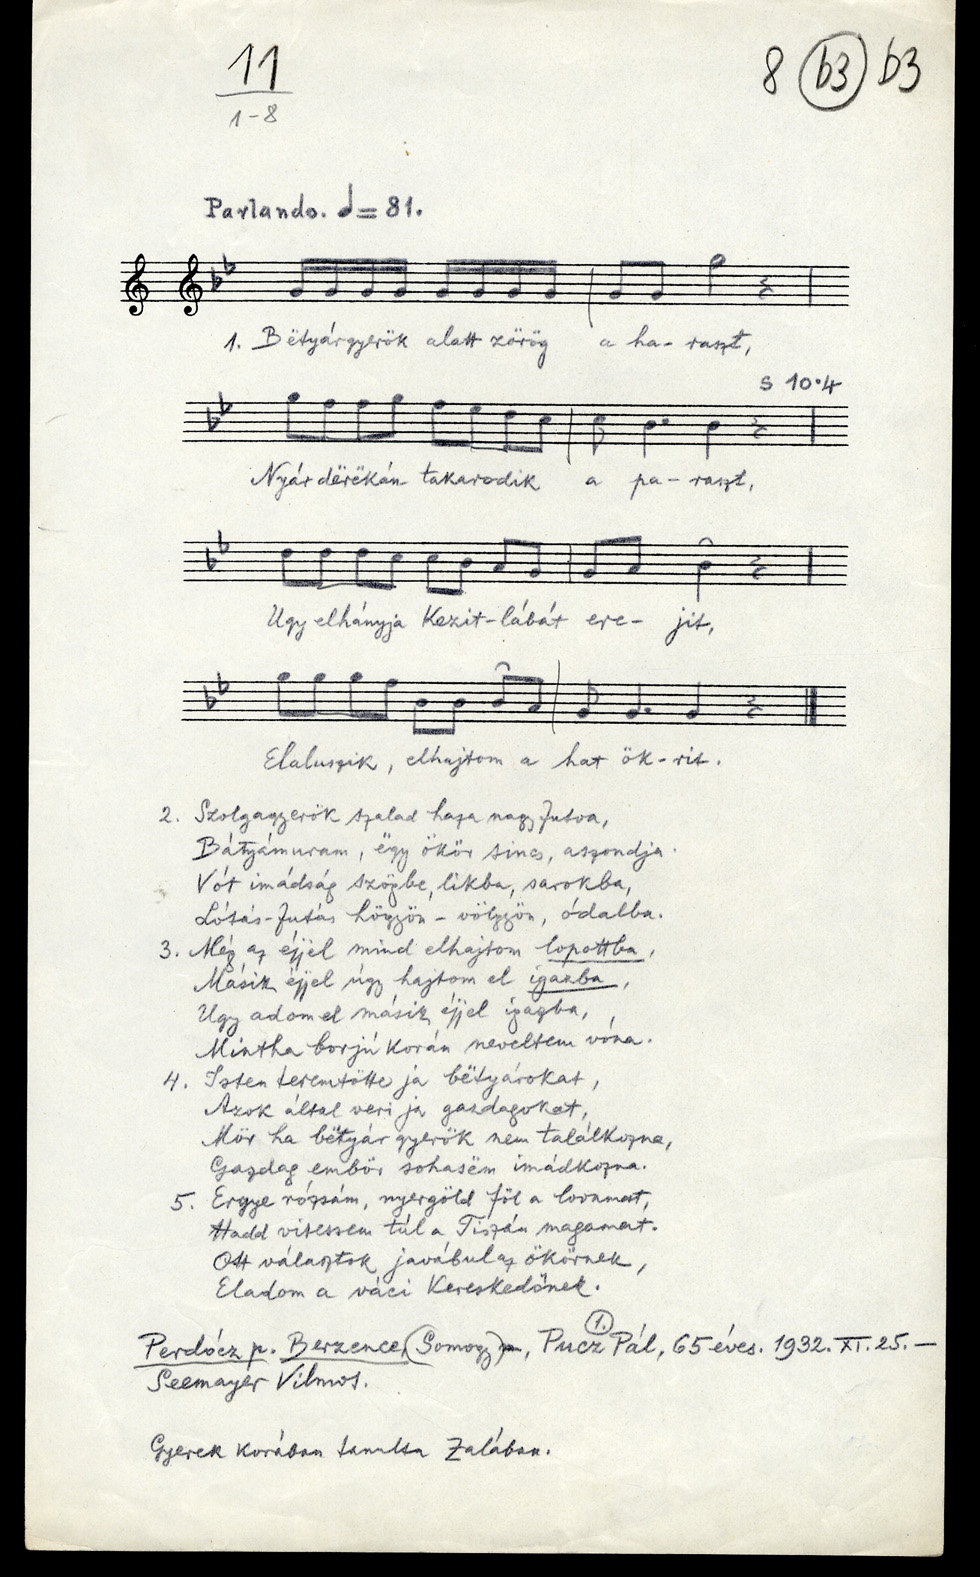 11
1-8
8 b3 b3
Parlando. ♩= 81.
1. Bëtyárgyerök alatt zörög a ha- raszt,
S 10·4
Nyár dërëkán takarodik a pa- raszt,
Ugy elhányja Kezit-lábát ere- jit,
Elaluszik, elhajtom a hat ök-rit.
2. Szolgagyerök szalad haza nagy futva,
Bátyámuram, ëgy ökör sincs, aszondja.
Vót imádság szögbe, likba, sarokba,
Lótás-futás högyön-völgyön, ódalba.
3. Még az éjjel mind elhajtom lopottba,
Másik éjjel úgy hajtom el igazba,
Ugy adom el másik éjjel igazba,
Mintha borjú korán neveltem vóna.
4. Isten teremtötte ja bëtyárokat,
Azok által veri ja gazdagokat,
Mör ha bëtyár gyerök nem találkozna,
Gazdag embör sohasëm imádkozna.
5. Ergye rózsám, nyergöld föl a lovamat,
Hadd vitessem túl a Tiszán magamat.
Ott választok javábul az ökörnek,
Eladom a váci Kereskedőnek.
Perdócz p. Berzence, (Somogy), Pucz Pál, 65 éves. 1932. XI. 25. —
1.
Seemayer Vilmos.
Gyerek korában tanulta Zalában.